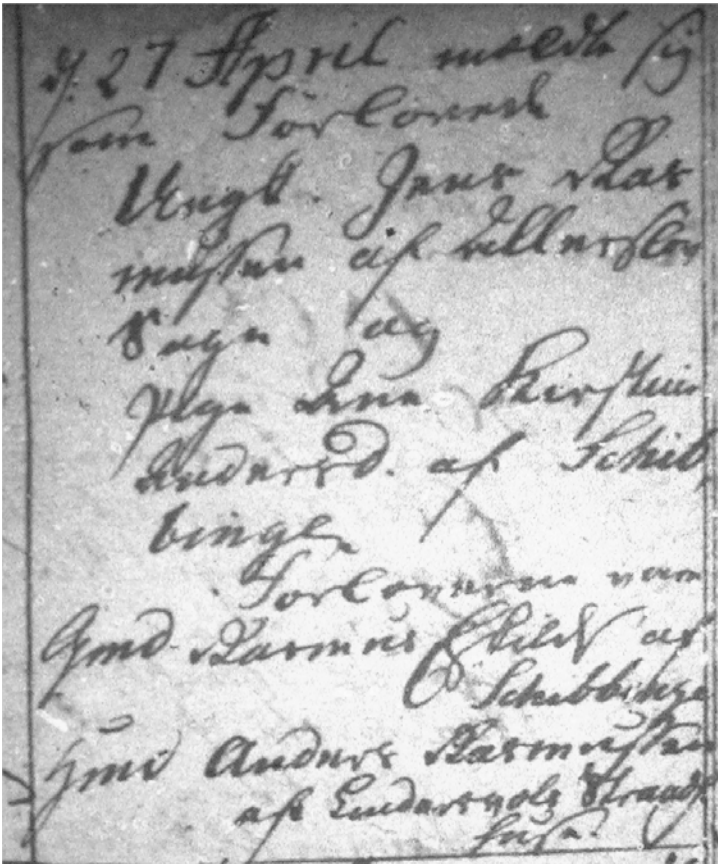 d. 27 April meldte sig
som Forlovede
Ungk. Jens Ras
mussen af Ullerslev
Sogn og
Pige Ane Kirstine
Andersd. af Schib
binge
Forloverne vare
Gmd. Rasmus af
Schibbinge
Hmd Anders Rasmussen
af Strand
huse.